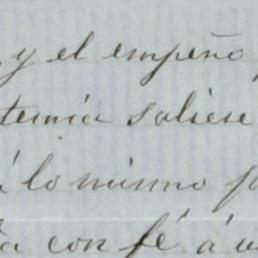 , y el empeño
temia saliese
á lo mismo
con fé á